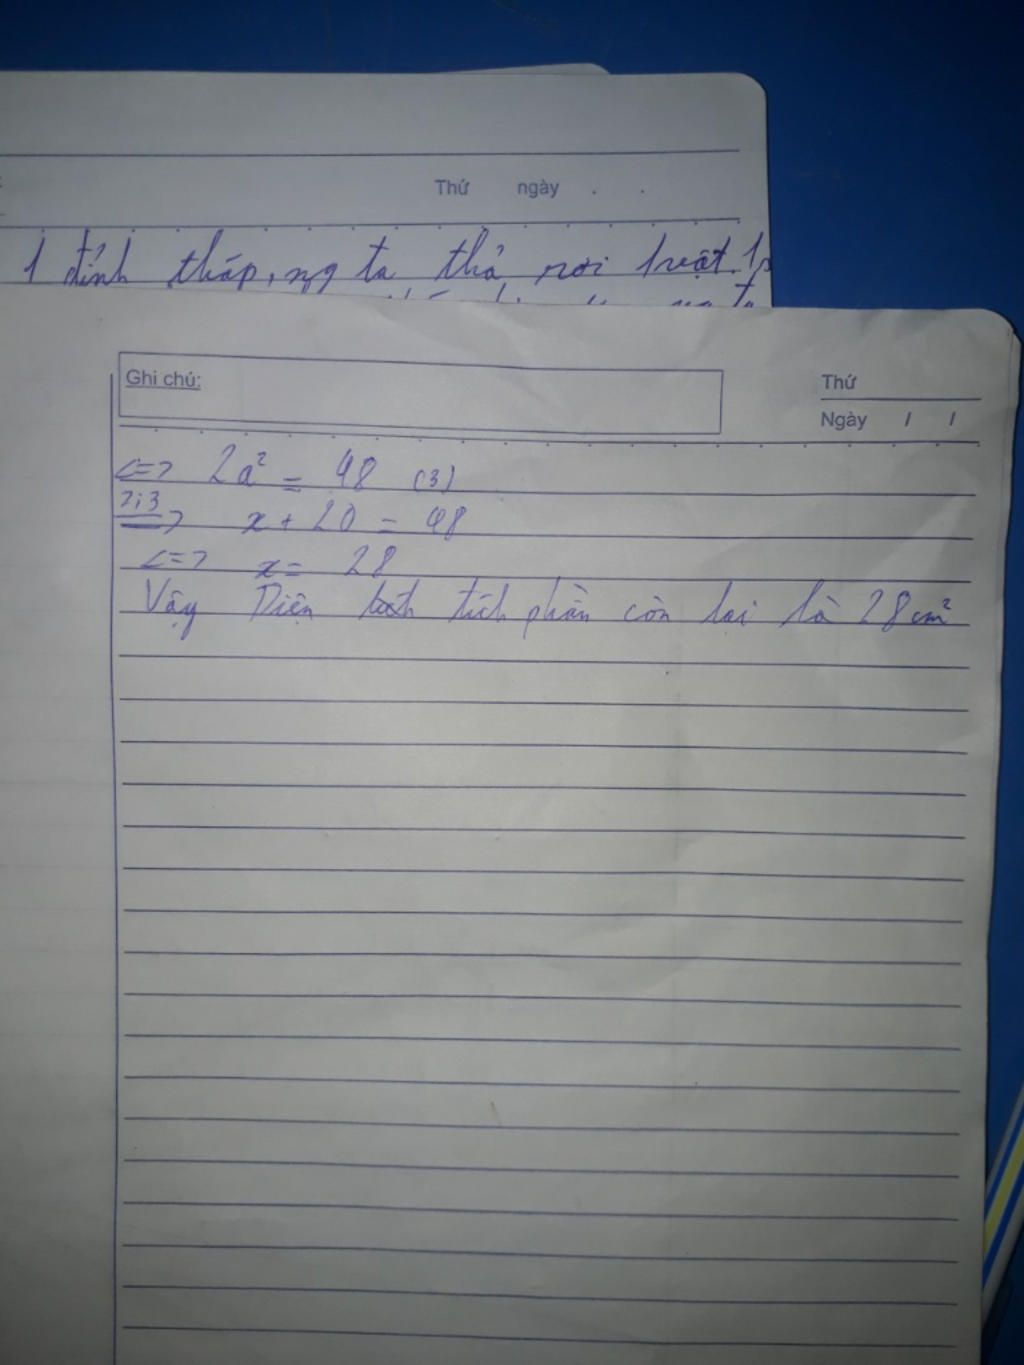 Thứ ngày . .
1 đỉnh tháp, ng ta thả rơi 1 vật. 1s
ng ta
Ghi chú:
Thứ
Ngày / /
<=> 2a² = 48 (3)
2;3 => x + 20 = 48
<=> x = 28
Vậy Diện tích phần còn lại là 28 cm²